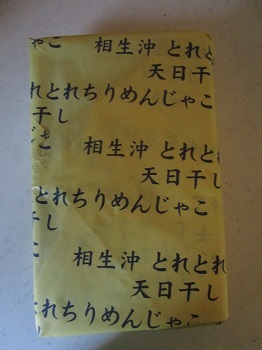 じゃこ 相生沖 とれと
天日干
れとれちりめんじゃこ
干し
じこ 相生沖 とれと
天日干し
とれとれちりめんじゃこ
干し
こ 相生沖 とれとれ
天日干し
れとれちりめんじゃこ